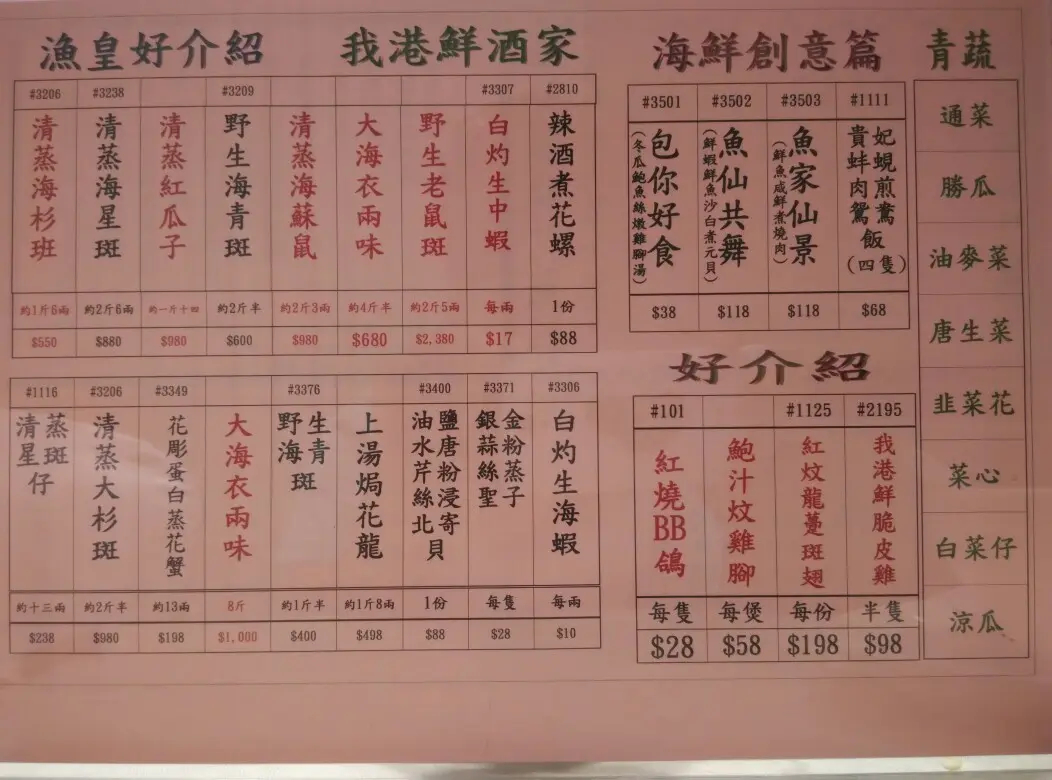 漁皇好介紹
我港鮮酒家
#3206 #3238 #3209 #3307 #2810
清蒸海杉班
清蒸海星斑
清蒸紅瓜子
野生海青斑
清蒸海蘇鼠
大海衣兩味
野生老鼠斑
白灼生中蝦
辣酒煮花螺
約1斤6兩 約2斤6兩 約一斤十四 約2斤半 約2斤3兩 約4斤半 約2斤5兩 每兩 1份
$550 $880 $980 $600 $980 $680 $2,380 $17 $88
#1116 #3206 #3349 #3376 #3400 #3371 #3306
清蒸星斑仔
清蒸大杉斑
花彫蛋白蒸花蟹
大海衣兩味
野生海青斑
上湯焗花龍
油鹽水唐芹粉絲浸北寄貝
銀金蒜粉絲蒸聖子
白灼生海蝦
約十三兩 約2斤半 約13兩 8斤 約1斤半 約1斤8兩 1份 每隻 每兩
$238 $980 $198 $1,000 $400 $498 $88 $28 $10
海鮮創意篇
#3501 #3502 #3503 #1111
包你好食
(冬瓜鮑魚絲燉雞腳湯)
魚仙共舞
(鮮蝦鮮魚沙白煮元貝)
魚家仙景
(鮮魚咸鮮煮燒肉)
貴妃蚌蜆肉煎鴛鴦飯
(四隻)
$38 $118 $118 $68
好介紹
#101 #1125 #2195
紅燒BB鴿
鮑汁炆雞腳
紅炆龍躉斑翅
我港鮮脆皮雞
每隻 每煲 每份 半隻
$28 $58 $198 $98
青蔬
通菜
勝瓜
油麥菜
唐生菜
韭菜花
菜心
白菜仔
涼瓜